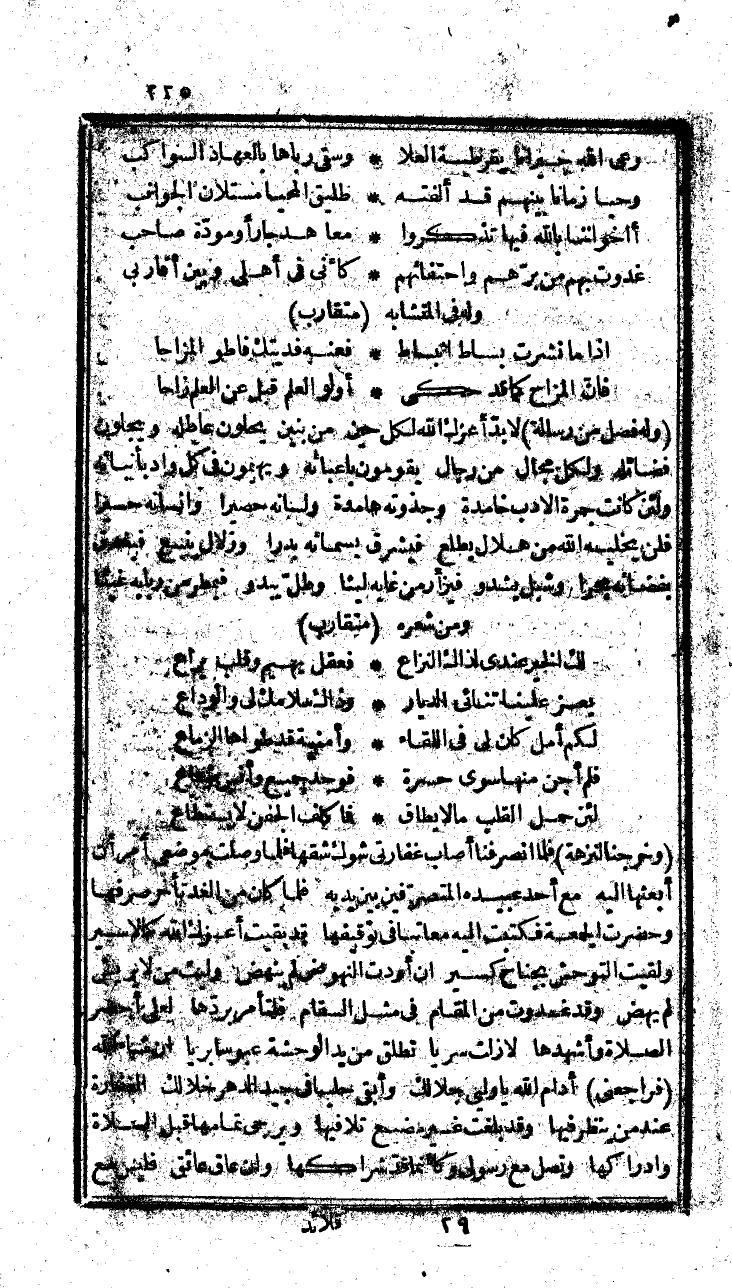 ٢٢٥
رعى الله جيرانا بقرطبة العلا * وسقى رباها بالعهاد السواكب
وحيا زمانا بينهم قد ألفته * طليق المحيا مستلان الجوانب
أاخواننا بالله فيها تذكروا * معاهد جار أومودة صاحب
غدوت بهم من برّهم واحتفائهم * كأنى فى أهلى وبين أقاربى
وله فى المتشابه (متقارب)
اذا ما نشرت بساط انبساط * فعنه فديتك فاطو المزاحا
فان المزاح كما قد حكى * أولو العلم قبل عن العلم زاحا
(وله فصل من رسالة) لابدّ أعزك الله لكل حين من بنين يحلون عاطل ويجلون
فضائله ولكل مجال من رجال يقومون باعبائه ويهيمون فى كل واد بأنبائه
ولئن كانت جرة الادب خامدة وجذوته هامدة ولسانه حصيرا وانسانه حسيرا
فلن يخليه الله من هلال يطلع فيشرق بسمائه بدرا وزلال ينبع فيفيض
بفضائه بحرا وشبل يشدو فيزأر من غابه ليثا وطل يبدو فيمطر من ربابه غيثا
ومن شعره (متقارب)
لك الخير عندى لذاك النزاع * فعقل يهيم وقلب يراع
يعز علينا تنائى الديار * وذاك سلامك لى والوداع
لكم أمل كان لى فى اللقاء * وأمنية قد طواها الزماع
فلم أجن منها سوى حسرة * فوجد جميع وأنس شعاع
لئن حمل القلب مالا يطاق * فما كلف الجفن لا يستطاع
(وخرجنا لنزهة) فلما انصرفنا أصاب غفارتى شوك شقها فلما وصلت موضعى أمر أن
أبعثها اليه مع أحد عبيده المتصرّفين بين يديه فلما كان من الغد تأخر صرفها
وحضرت الجمعة فكتبت اليه معاتبا فى توقيفها قد بقيت أعزك الله كالاسير
ولقيت التوحش بجناح كسير ان أردت النهوض لم ينهض وليث من لا يريش
لم يهض وقد غدوت من المقام فى مثل السقام فلتأمر بردّها لعلى أحضر
الصلاة وأشهدها لازلت سريا تطلق من يد الوحشة عبوسا بريا ان شاء الله
(فراجعنى) أدام الله يا وليى جلالك وأبقى حليا فى جيد الدهر خلالك الغفارة
عند من ينظر فيها وقد بلغت غير مضيع تلافيها ويرجى تمامها قبل الصلاة
وادراكها وتصل مع رسولى وكأنما قد شراكها وان عاق عائق فليس مع
٢٩ قلائد